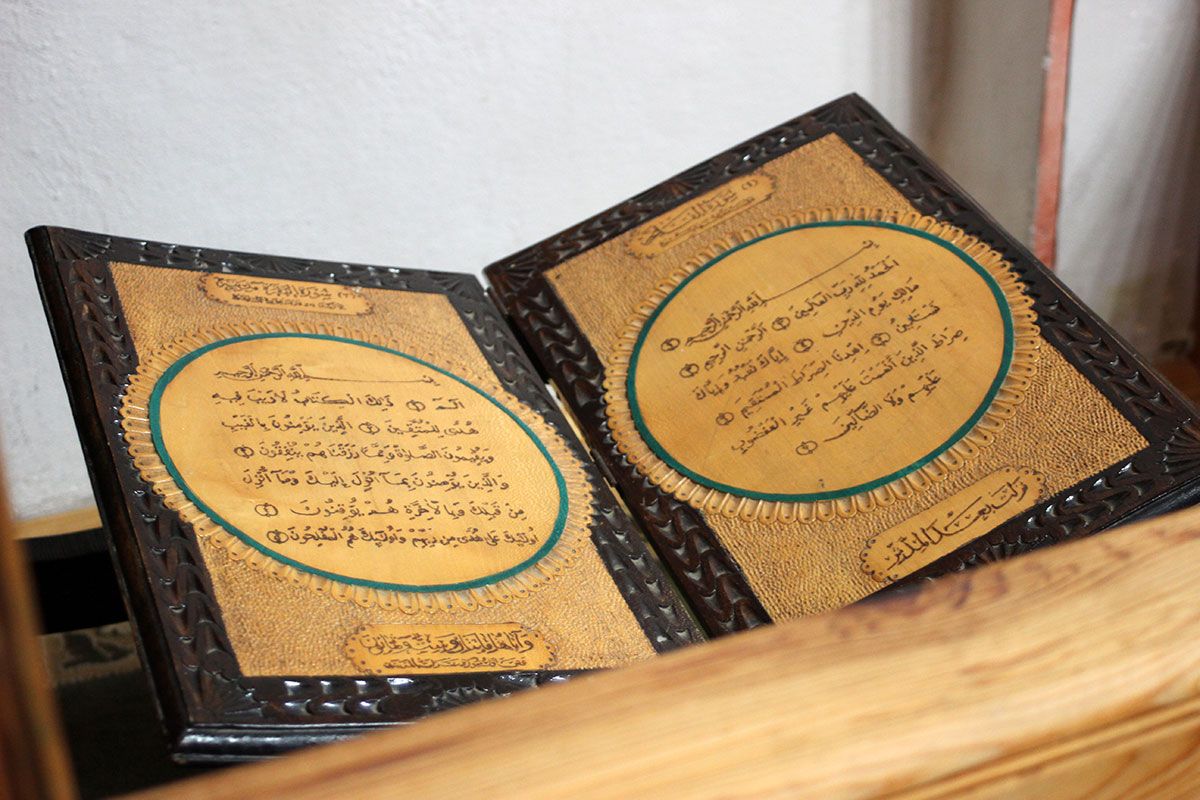 سورة الفاتحة (١)
بسم الله الرحمن الرحيم ١
الحَمْدُ للهِ رَبِّ العَالَمِينَ ٢ الرَّحْمَنِ الرَّحِيمِ ٣
مَالِكِ يَوْمِ الدِّينِ ٤ إِيَّاكَ نَعْبُدُ وَإِيَّاكَ
نَسْتَعِينُ ٥ اهْدِنَا الصِّرَاطَ المُسْتَقِيمَ ٦
صِرَاطَ الَّذِينَ أَنْعَمْتَ عَلَيْهِمْ غَيْرِ المَغْضُوبِ
عَلَيْهِمْ وَلَا الضَّالِّينَ ٧
نزلت بعد المدثر
سورة البقرة مدنية (٢)
بسم الله الرحمن الرحيم
الم ١ ذَلِكَ الكِتَابُ لَا رَيْبَ فِيهِ
هُدًى لِلْمُتَّقِينَ ٢ الَّذِينَ يُؤْمِنُونَ بِالْغَيْبِ
وَيُقِيمُونَ الصَّلَاةَ وَمِمَّا رَزَقْنَاهُمْ يُنْفِقُونَ ٣
وَالَّذِينَ يُؤْمِنُونَ بِمَا أُنْزِلَ إِلَيْكَ وَمَا أُنْزِلَ
مِنْ قَبْلِكَ وَبِالآخِرَةِ هُمْ يُوقِنُونَ ٤
أُولَئِكَ عَلَى هُدًى مِنْ رَبِّهِمْ وَأُولَئِكَ هُمُ المُفْلِحُونَ ٥
وآياتها مائتان وست وثمانون